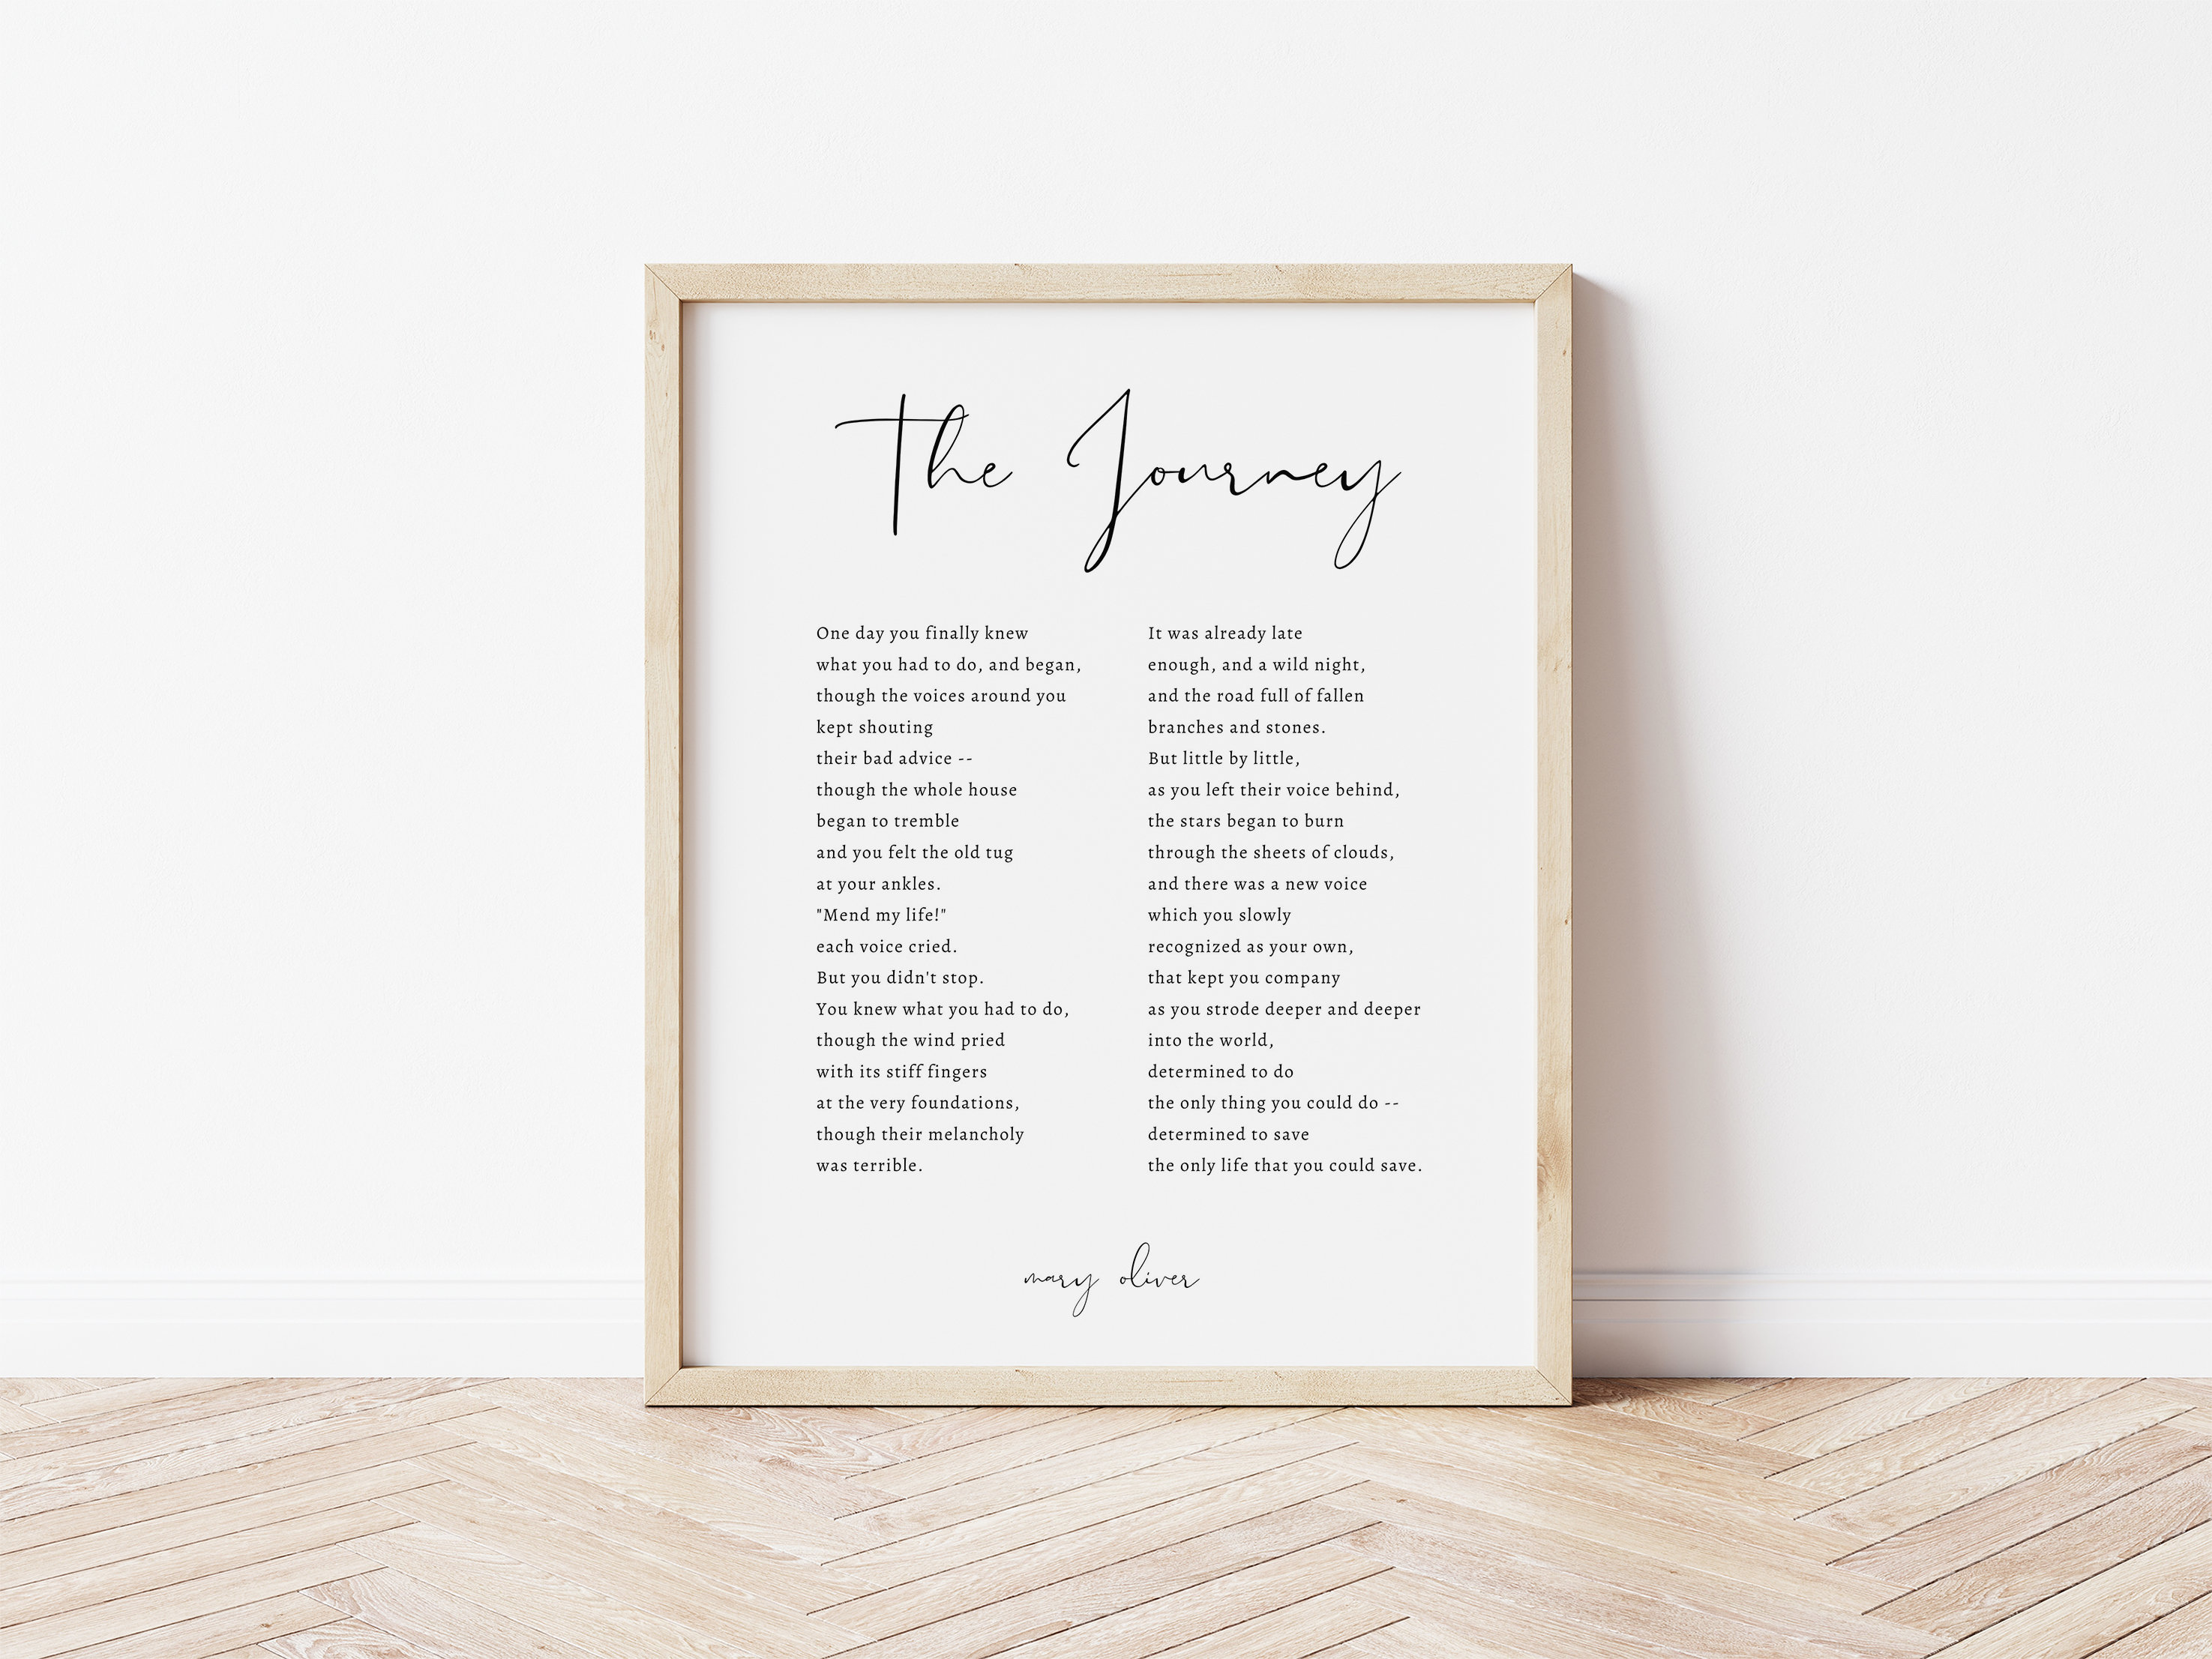 The Journey
One day you finally knew
what you had to do, and began,
though the voices around you
kept shouting
their bad advice --
though the whole house
began to tremble
and you felt the old tug
at your ankles.
"Mend my life!"
each voice cried.
But you didn't stop.
You knew what you had to do,
though the wind pried
with its stiff fingers
at the very foundations,
though their melancholy
was terrible.
It was already late
enough, and a wild night,
and the road full of fallen
branches and stones.
But little by little,
as you left their voice behind,
the stars began to burn
through the sheets of clouds,
and there was a new voice
which you slowly
recognized as your own,
that kept you company
as you strode deeper and deeper
into the world,
determined to do
the only thing you could do --
determined to save
the only life that you could save.
mary oliver